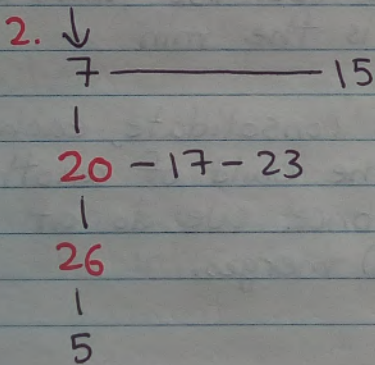 2. ↓
7 — 15
|
20 - 17 - 23
|
26
|
5